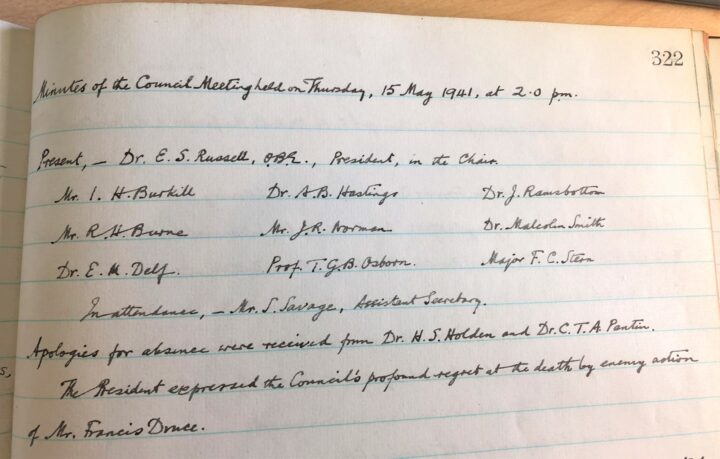 322
Minutes of the Council Meeting held on Thursday, 15 May 1941, at 2.0 p.m.
Present, – Dr. E. S. Russell, O.B.E., President, in the Chair.
Mr. I. H. Burkill Dr. A. B. Hastings Dr. J. Ramsbottom
Mr. R. H. Burne Mr. J. R. Norman Dr. Malcolm Smith
Dr. E. M. Delf. Prof. T. G. B. Osborn. Major F. C. Stern
In attendance, – Mr. S. Savage, Assistant Secretary.
Apologies for absence were received from Dr. H. S. Holden and Dr. C. T. A. Pantin.
The President expressed the Council's profound regret at the death by enemy action
of Mr. Francis Druce.